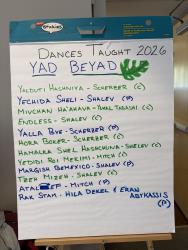 DANCES TAUGHT 2026
YAD BEYAD
YALDUTI HASHNIYA - SCHERZER (C)
YECHIDA SHELI - SHALEV (P)
MIUCHAD HA'AHAVA - TAMAR (C)
ENDLESS - SHALEV (C)
YALLA BYE - SCHERZER (P)
HORA BOKER - SCHERZER (C)
HAMALKA SHEL HASHCHUNA - SHALEV (C)
YEDIDI ROI MEKIMI - MITCH (C)
MARGISH BEMEXICO - SHALEV (P)
TZEH MIZEH - SHALEV (C)
MITCH (P)
RAK STAM - HILA DEKEL & ERAN
ABYKASSIS
(P)